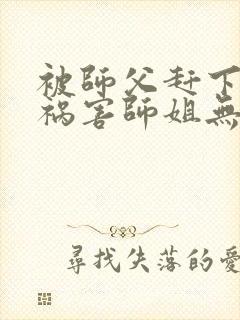 被師父赶下
祸害師姐無
尋找失落的愛